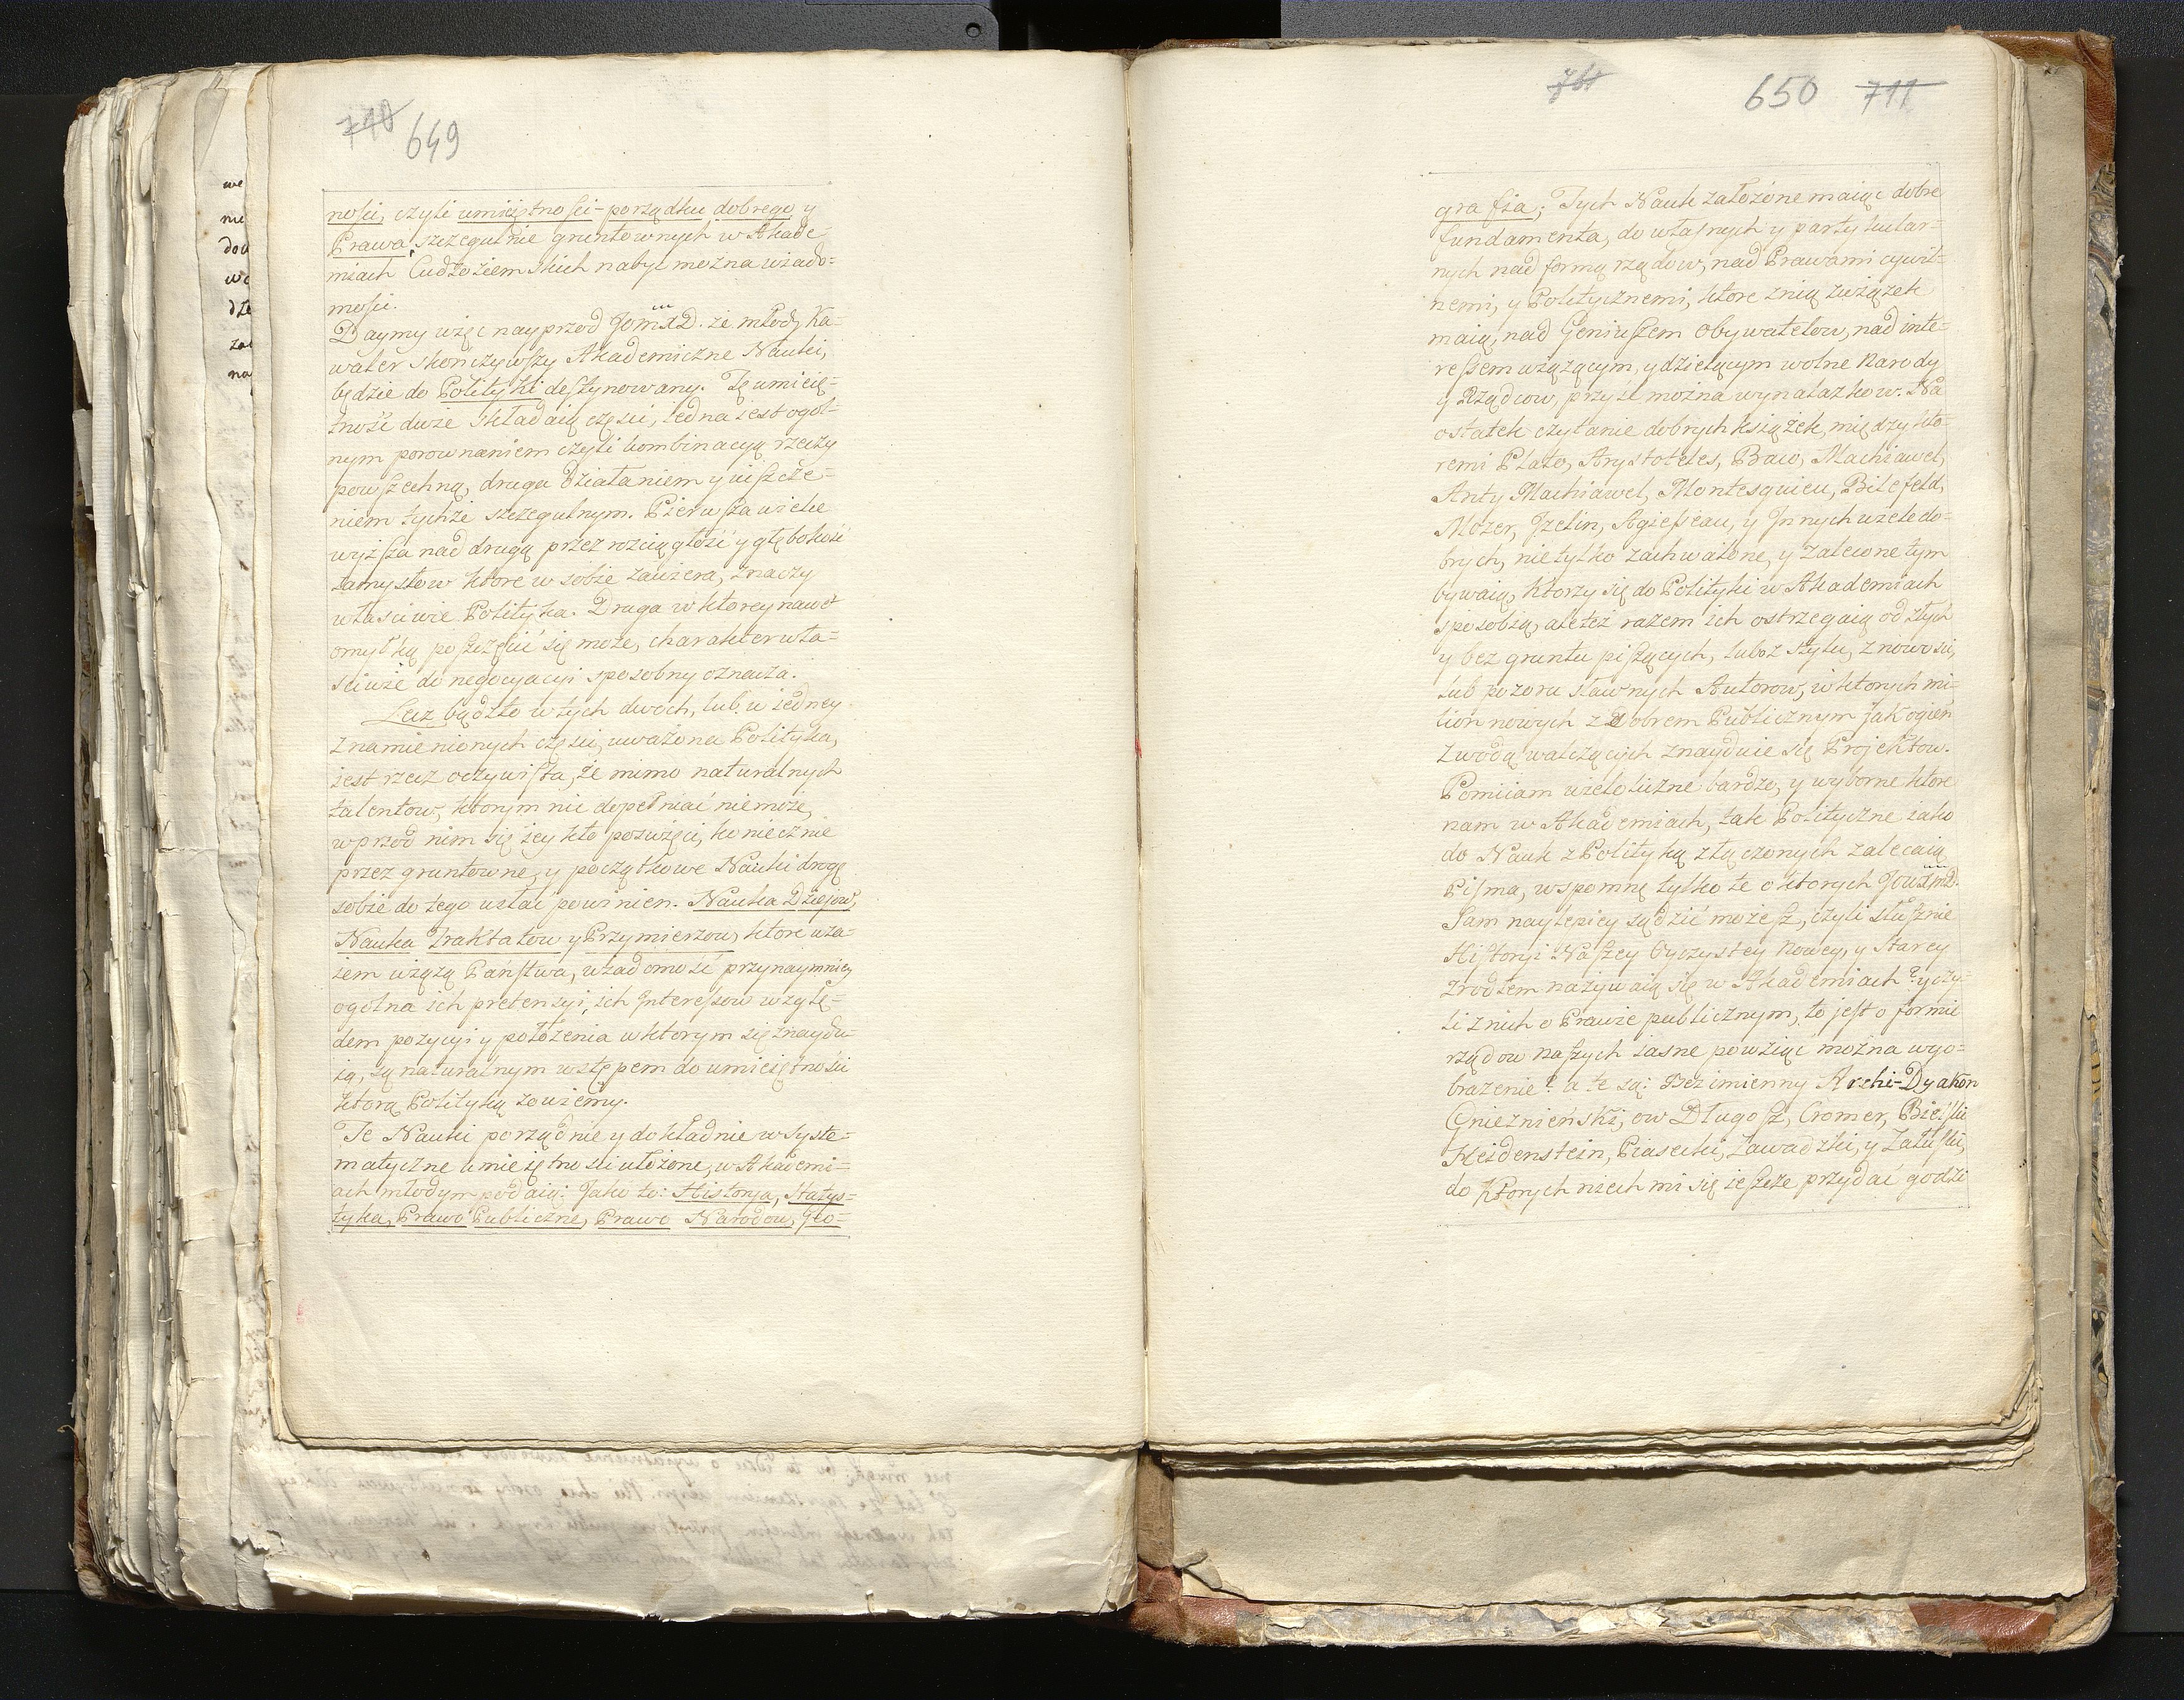 710 649
ności, czyli umiiętności-porządku dobrego y
Prawa, szczegulnie gruntownych w Akade-
miach Cudzoziemskich nabyć można wiado=
mości.
Daymy więc nayprzod że młody Ka=
waler skonczywszy Akademiczne Nauki,
będzie do Polityki destynowany. Tę umieię-
tność dwie składaią części, iedna iest ogol-
nym porownaniem czyli kombinacyą rzeczy
powszechną, druga działaniem y uiszcze=
niem tychże szczegulnym. Pierwsza wiele
wyższa nad drugą przez rozciągłość y głębokość
zamysłow ktore w sobie zawiera, znaczy
właściwie Polityka. Druga w ktorey nawet
omyłką poszczęścić się może, charakter wła=
ściwie do negocyacyi sposobny oznacza.
Lecz bądzto w tych dwoch, lub w iedney
znamienionych części, uważona Polityka,
iest rzecz oczywista, że mimo naturalnych
talentow, ktorym nic dopełniać niemoże,
wprzod nim się iey kto poswięci, koniecznie
przez gruntowne, y początkowe Nauki drogę
sobie do tego usłać powinien. Nauka Dzieiow,
Nauka Traktatow y Przymierzow, ktore wza=
iem wiążą Państwa, wiadomość przynaymniey
ogolna ich pretensyi, ich Interessow wzglę=
dem pozycyi y położenia w ktorym się znaydu-
ią, są naturalnym wstępem do umieiętności
ktorą Polityką zowiemy.
Te Nauki porządnie y dokładnie w syste=
matyczne umieiętności ułożone, w Akademi=
ach młodym podaią: Jako to: Historya, Statys=
tyka, Prawo Publiczne, Prawo Narodow, Geo=
761 650 711
grafia; Tych Nauk założone maiąc dobre
fundamenta, do własnych y partykular-
nych nad formą rządow, nad Prawami cywil=
nemi, y Politycznemi, ktore z nią związek
maią, nad Geniuszem Obywatelow, nad inte=
ressem wiążącym, y dzielącym wolne Narody
y Rządcow, przyść można wynalazkow. Na
ostatek czytanie dobrych książek, między kto-
remi Plato, Arystoteles, Baw, Machiawel,
Anty Machiawel, Montesquieu, Bilefeld,
Mozer, Izelin, Agiesseau, y Innych wiele do-
brych, nie tylko zachwalone, y zalecone tym
bywaią, ktorzy się do Polityki w Akademiach
sposobią, ale też razem ich ostrzegaią od złych
y bez gruntu piszących, lub z stylu, z nowości,
lub pozoru sławnych Autorow, w ktorych mi=
lion nowych z Dobrem Publicznym jak ogień
z wodą walczących znayduie się Projektow.
Pomiiam wielo liczne bardzo, y wyborne ktore
nam w Akademiach, tak Polityczne iako
do Nauk z Polityką złączonych zalecaią
Pisma, wspomnę tylko te o ktorych
Sam naylepiey sądzić możesz, czyli słusznie
Historyi Naszey Oyczystey Nowey, y Starey
zrodłem nazywaią się w Akademiach? y czy-
li z nich o Prawie publicznym, to jest o formie
rządow naszych iasne powziąć można wyo=
brażenie? a te są: Bezimienny Archi-Dyakon
Gnieznieński, ow Długosz, Cromer, Bielski
Heidenstein, Piasecki, Zawadzki, y Załuski,
do ktorych niech mi się ieszcze przydać godzi